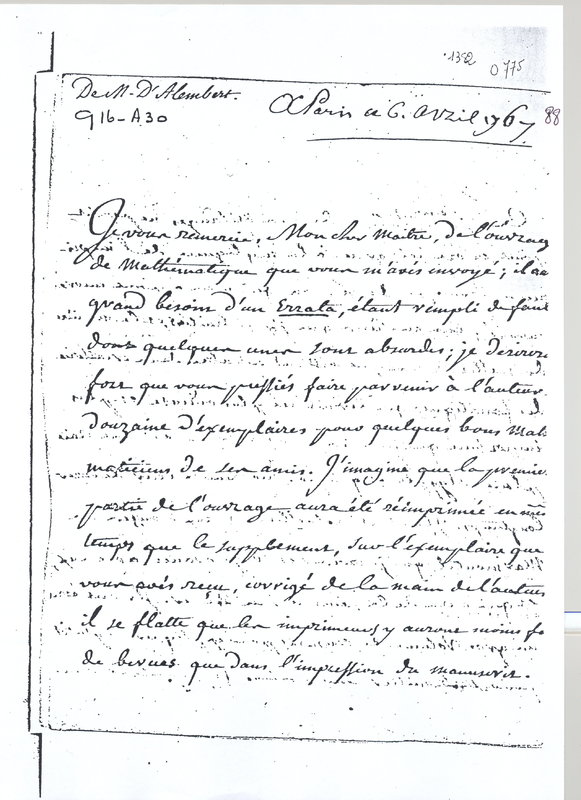 1382
0775
De M. D'Alembert.
916-A30
A Paris ce 6. Avril 1767
88
Je vous remercie, Mon cher maitre, de l'ouvrag
de Mathématique que vous m'avés envoyé; il au
grand besoin d'un Errata, étant rempli de faut
dont quelques unes sont absurdes; je desirerois
fort que vous pussiés faire parvenir à l'auteur
douzaine d'exemplaires pour quelques bons Mat
maticiens de ses amis. J'imagine que la premie
partie de l'ouvrage aura été réimprimée en mêm
temps que le supplement, sur l'exemplaire que
vous avés reçu, corrigé de la main de l'auteur
il se flatte que les imprimeurs y auront moins fa
de bevues que dans l'impression du manuscrit.